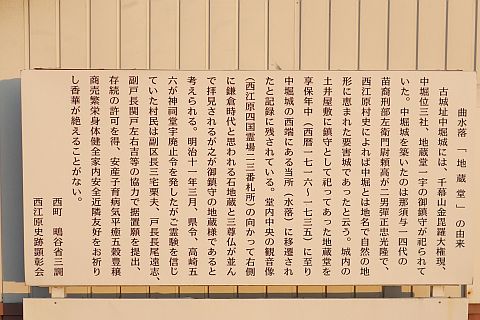 曲水落 「地蔵堂」 の由来
古城址中堀城には、千幕山金毘羅大権現、
中堀位三社、地蔵堂一宇の御鎮守が祀られて
いた。中堀城を築いたのは那須与一四代の
苗裔刑部左衛門尉頼高が二男彈正忠光隆で、
西江原村史によれば中堀とは地名で自然の地
形に恵まれた要害城であったと云う。城内の
土井屋敷に鎮守として祀ってあった地蔵堂を
享保年中(西暦一七一六〜一七三五)に至り
中堀城の西端にある当所(水落)に移遷され
たと記録に残されている。堂内中央の観音像
(西江原四国霊場二三番札所)の向かって右側
に鎌倉時代と思われる石地蔵と三尊仏が並ん
で拝見されるが之が御鎮守の地蔵様であると
考えられる。明治十一年三月、県令、高崎五
六が神祠堂宇廃止令を発したがこ霊験を信じ
ていた村民は副区長三宅粟夫、戸長長尾遠志、
副戸長関戸左右吉等の協力で据置願を提出、
存続の許可を得、安産子育病気平癒五穀豊穣
商売繁栄身体健全家内安全近隣友好をお祈り
し香華が絶えることがない。
西町 鳴谷省三調
西江原史跡顕彰会